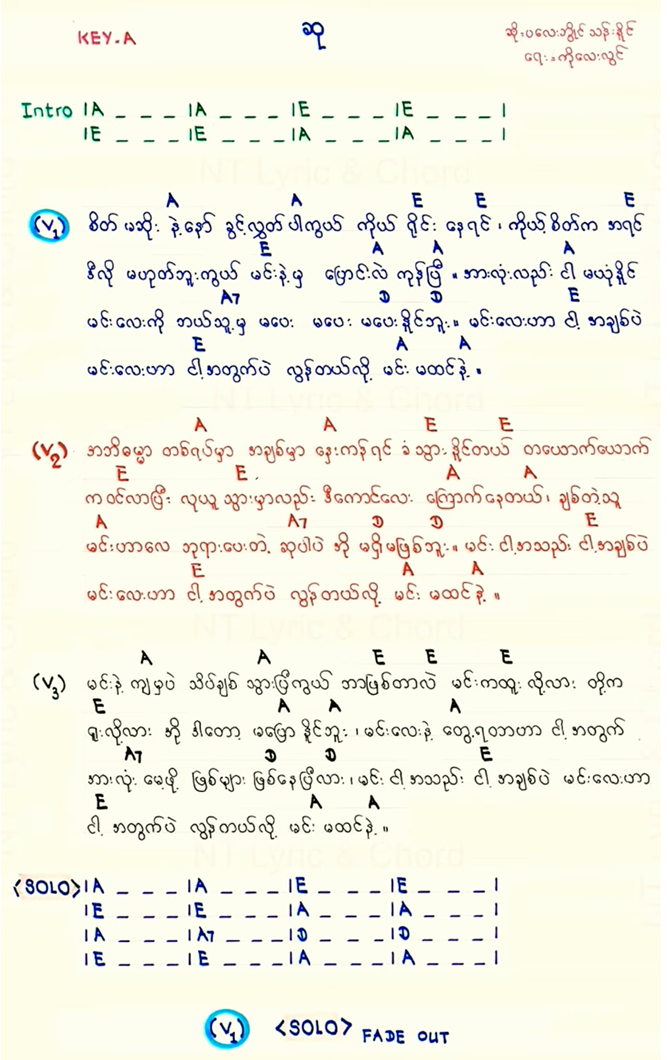 KEY-A
ဆု
ဆို : ပလေးဘွိုင် သန်းနိုင်
ရေး : ကိုလေးလွင်
Intro |A _ _ _ |A _ _ _ |E _ _ _ |E _ _ _ |
|E _ _ _ |E _ _ _ |A _ _ _ |A _ _ _ |
NT Lyric & Chord
A A E E E
(V1) စိတ် မဆိုး နဲ့နော် ခွင့်လွှတ် ပါကွယ် ကိုယ် ရိုင်း နေရင် ၊ ကိုယ့်စိတ်က အရင်
E A A A
ဒီလို မဟုတ်ဘူးကွယ် မင်းနဲ့မှ ပြောင်းလဲ ကုန်ပြီ ။ အားလုံးလည်း ငါ မယုံနိုင်
A7 D D E
မင်းလေးကို ဘယ်သူ့မှ မပေး မပေး မပေးနိုင်ဘူး ။ မင်းလေးဟာ ငါ့ အချစ်ပဲ
E A A
မင်းလေးဟာ ငါ့အတွက်ပဲ လွန်တယ်လို့ မင်း မထင်နဲ့ ။
NT Lyric & Chord
A A E E
(V2) အဘိဓမ္မာ တစ်ရပ်မှာ အချစ်မှာ နှေးကန်ရင် ခံ သွား နိုင်တယ် တယောက်ယောက်
E E A A
က ဝင်လာပြီး လုယူ သွားမှာလည်း ဒီကောင်လေး ကြောက်နေတယ်၊ ချစ်တဲ့သူ
A A7 D D E
မင်းဟာလေ ဘုရားပေးတဲ့ ဆုပါပဲ အို မရှိမဖြစ်ဘူး ။ မင်း ငါ့အသည်း ငါ့အချစ်ပဲ
E A A
မင်းလေးဟာ ငါ့ အတွက်ပဲ လွန်တယ်လို့ မင်း မထင်နဲ့ ။
NT Lyric & Chord
A A E E E
(V3) မင်းနဲ့ ကျမှပဲ သိပ်ချစ် သွားပြီကွယ် ဘာဖြစ်တာလဲ မင်းကထူး လို့လား တို့က
E A A A
ရူးလို့လား အို ဒါတော့ မပြော နိုင်ဘူး ၊ မင်းလေးနဲ့ တွေ့ရတာဟာ ငါ့ အတွက်
A7 D D E
အားလုံး မေ့ဖို့ ဖြစ်များ ဖြစ်နေပြီလား ၊ မင်း ငါ့ အသည်း ငါ့ အချစ်ပဲ မင်းလေးဟာ
E A A
ငါ့ အတွက်ပဲ လွန်တယ်လို့ မင်း မထင်နဲ့ ။
NT Lyric & Chord
<SOLO> |A _ _ _ |A _ _ _ |E _ _ _ |E _ _ _ |
|E _ _ _ |E _ _ _ |A _ _ _ |A _ _ _ |
|A _ _ _ |A7 _ _ _ |D _ _ _ |D _ _ _ |
|E _ _ _ |E _ _ _ |A _ _ _ |A _ _ _ |
(V1) <SOLO> FADE OUT